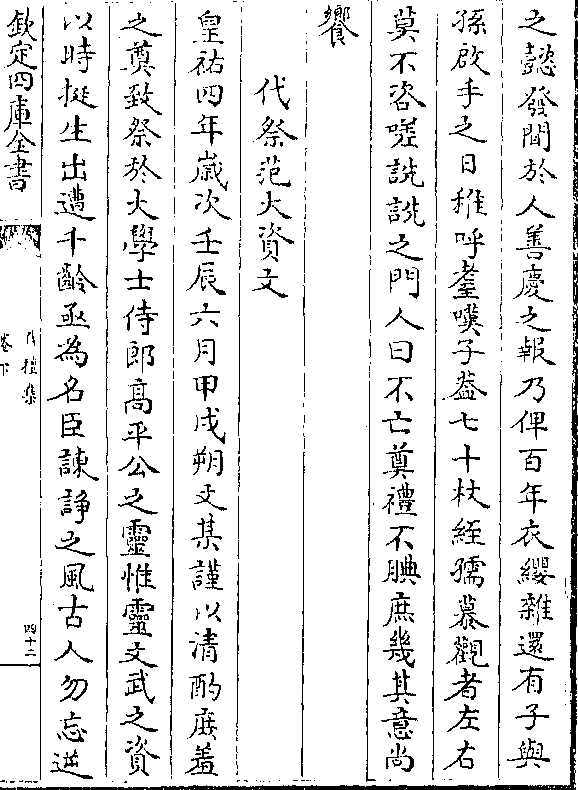 之懿發聞於人善慶之報乃俾百年衣纓雜還有子與
孫啟手之日稚呼耋嘆子葢七十杖絰孺慕觀者左右
莫不咨嗟詵詵之門人曰不亡奠禮不腆庶幾其意尚
饗
代祭范大資文
皇祐四年歲次壬辰六月甲戌朔文某謹以清酌庶羞
之奠致祭於大學士侍郎高平公之靈惟靈文武之資
以時挺生出遭千齡亟為名臣諫諍之風古人勿忘逆
欽定四庫全書
卷下
四十二